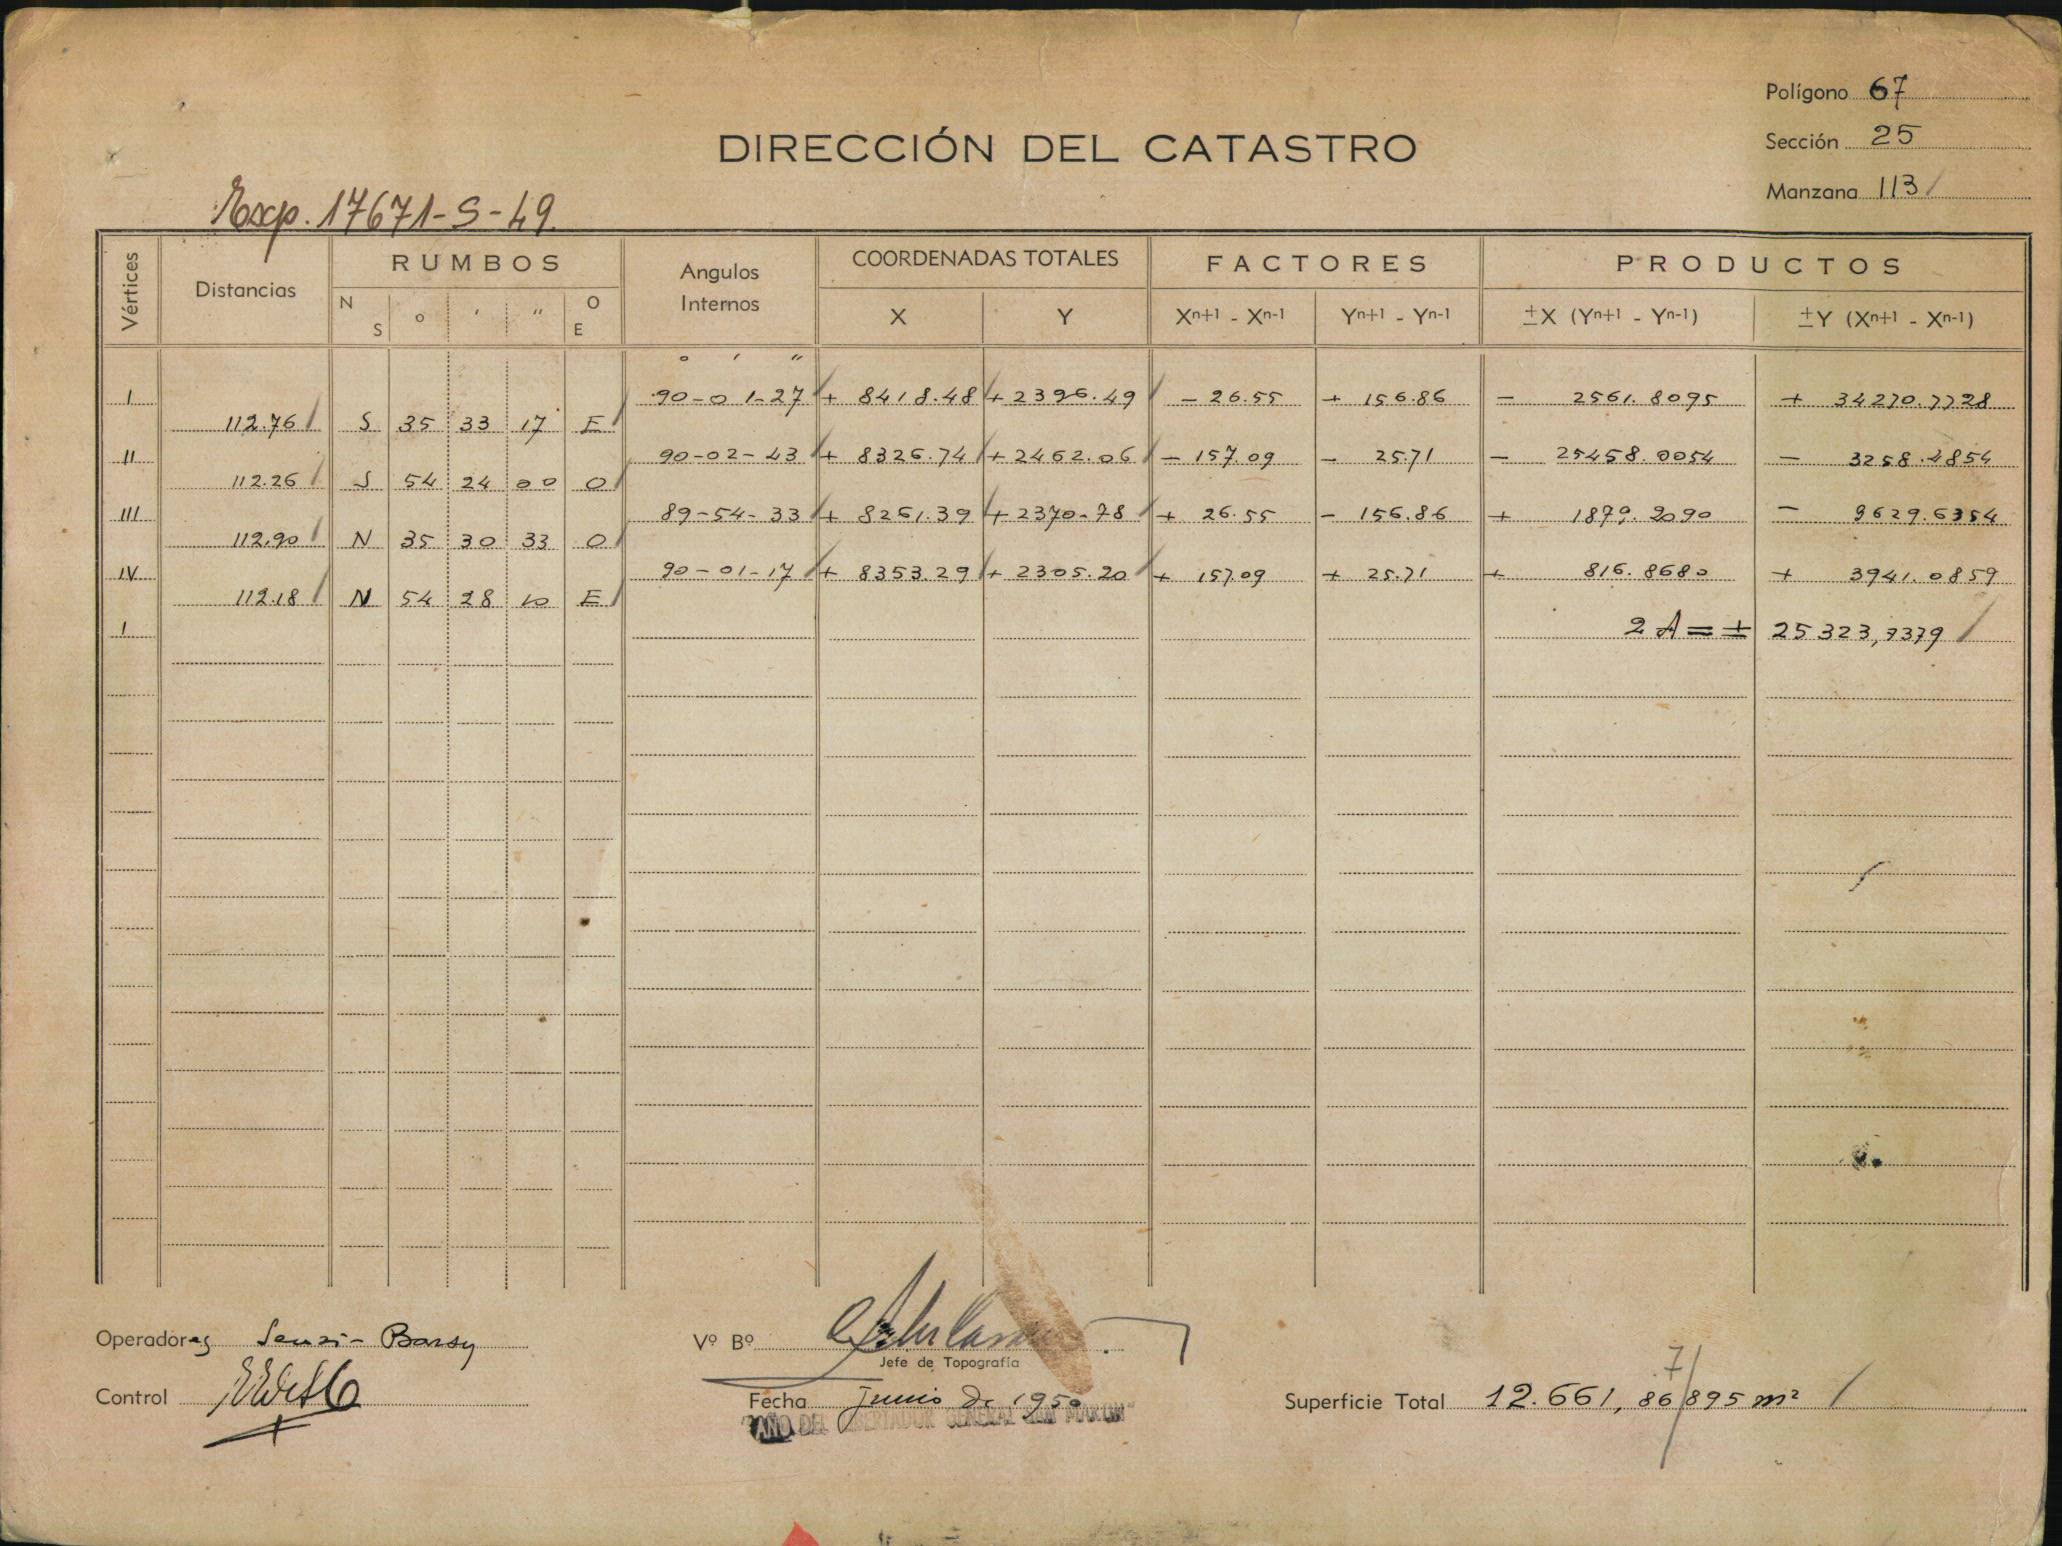 Polígono 67
DIRECCIÓN DEL CATASTRO
Sección 25
Manzana 113
Exp. 17671-S-49.
Vértices Distancias RUMBOS Angulos Internos COORDENADAS TOTALES FACTORES PRODUCTOS
N S o ' " O E X Y Xn+1 - Xn-1 Yn+1 - Yn-1 ±X (Yn+1 - Yn-1) ±Y (Xn+1 - Xn-1)
o ' "
I 90-01-27 + 8418.48 + 2396.49 - 26.55 + 156.86 - 2561.8095 + 34270.7728
112.76 S 35 33 17 E
II 90-02-43 + 8326.74 + 2462.06 - 157.09 - 25.71 - 25458.0054 - 3258.4854
112.26 S 54 24 00 O
III 89-54-33 + 8261.39 + 2370.78 + 26.55 - 156.86 + 1879.2090 - 9629.6354
112.90 N 35 30 33 O
IV 90-01-17 + 8353.29 + 2305.20 + 157.09 + 25.71 + 816.8680 + 3941.0859
112.18 N 54 28 10 E
I 2A = ± 25323,7379
Operadores Senzi - Barsy
Vº Bº
Jefe de Topografía
Control
Fecha junio de 1950
Superficie Total 12.661,86895 m²
7
"AÑO DEL LIBERTADOR GENERAL SAN MARTIN"